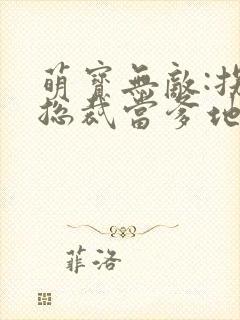 萌寶無敵:拐
總裁當爹地
菲洛